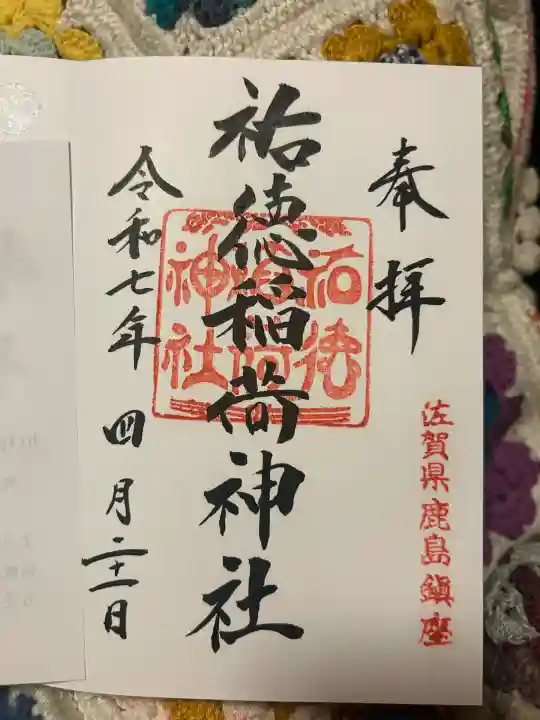 奉拝
佐賀県鹿島鎮座
祐徳稲荷神社
祐徳
稲荷
神社
令和七年 四月二十一日